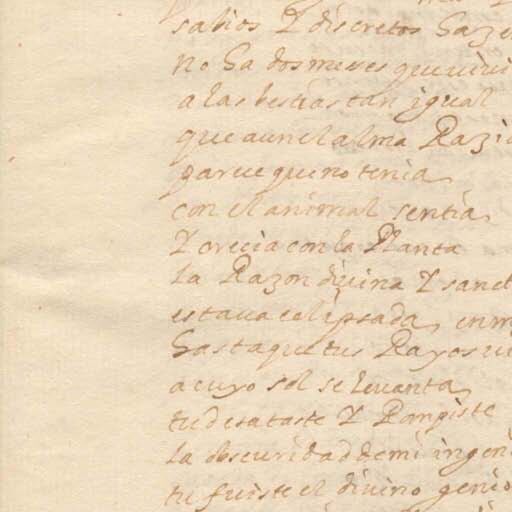 sabios Y discretos haze
no ha dos meses que vivi
a las bestias tan igual
que aun el alma Razio
pareçe que no tenia
con el animal sentia
Y crecia con la Planta
la Razon divina Y sanct
estava eclipsada en m
hasta que tus Rayos vi
a cuyo sol se levanta
tu desataste Y Rompiste
la obscuridad de mi ingeni
tu fuiste el divino genio